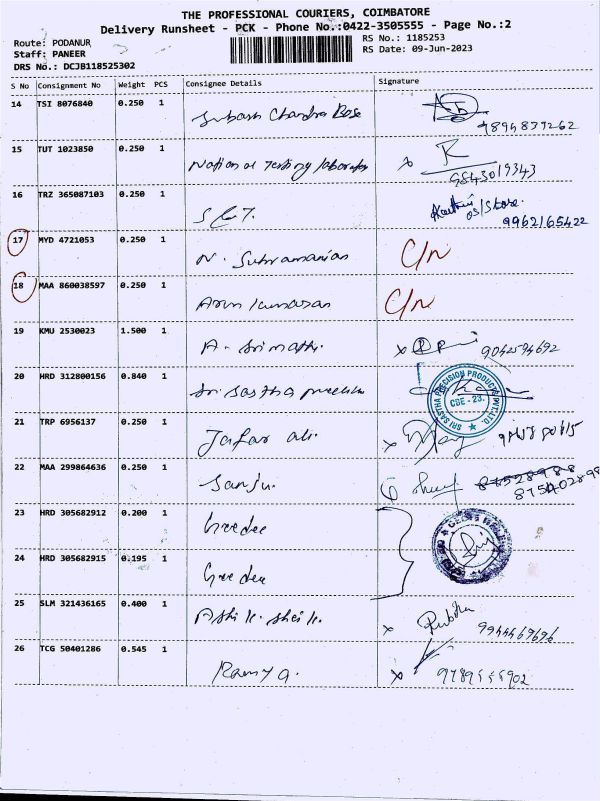 THE PROFESSIONAL COURIERS, COIMBATORE
Delivery Runsheet - PCK - Phone No.:0422-3505555 - Page No.:2
Route: PODANUR
RS No.: 1185253
Staff: PANEER
RS Date: 09-Jun-2023
DRS No.: DCJB118525302
S No Consignment No Weight PCS Consignee Details Signature
14 TSI 8076840 0.250 1 Subash Chandra Bose
9894837262
15 TUT 1023850 0.250 1 National Testing laborator x R
9843019343
16 TRZ 365087103 0.250 1 SLT.
os/Store.
9962165422
17 MYD 4721053 0.250 1 N. Subramanian C/N
18 MAA 860038597 0.250 1 Arun kumaran C/N
19 KMU 2530023 1.500 1 A. Srimathi x 9042594692
20 HRD 312800156 0.840 1 Sri Sastha
SRI SASTHA PRECISION PRODUCTS PVT. LTD.
CBE - 23.
21 TRP 6956137 0.250 1 Jafar ali. x
22 MAA 299864636 0.250 1 Sanju.
23 HRD 305682912 0.200 1 Greedee
24 HRD 305682915 0.195 1 Greedee
25 SLM 321436165 0.400 1 Ashik. sheik. x
9944469696
26 TCG 50401286 0.545 1 Ramya. x